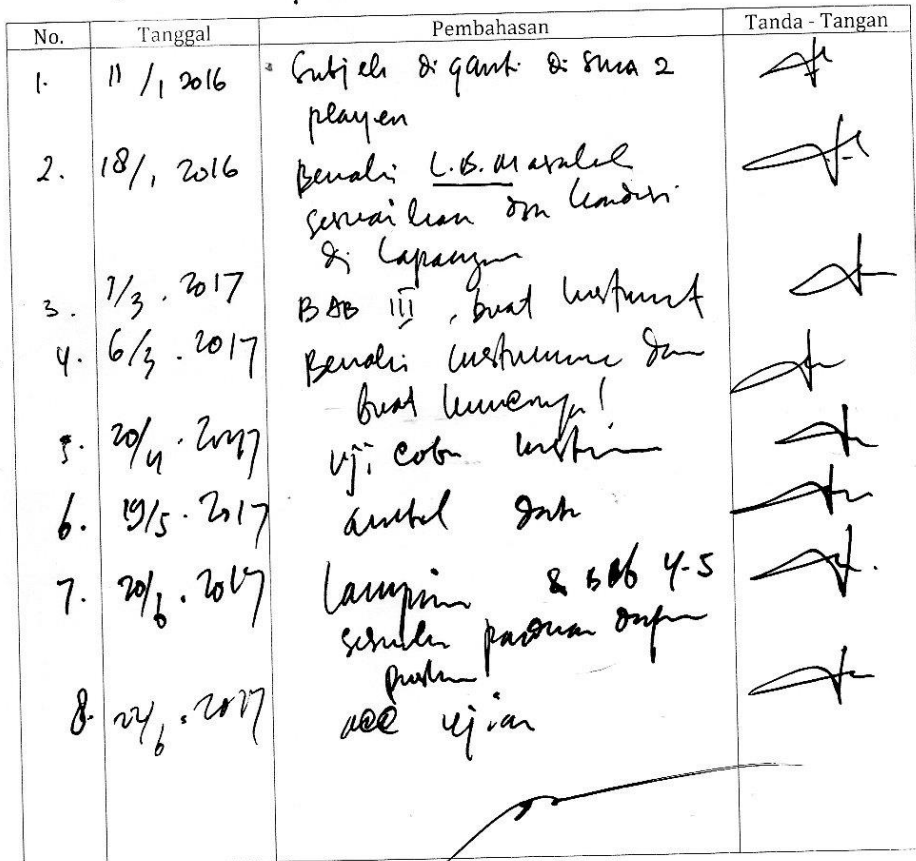 No. Tanggal Pembahasan Tanda - Tangan
1. 11/1 2016 Subjek diganti di SMA 2
playen
2. 18/1 2016 Benahi L.B. Masalah
sesuaikan dgn kondisi
di lapangan
3. 1/3 . 2017 BAB III , buat instrumen
4. 6/3 . 2017 Benahi instrumen dan
buat
5. 20/4 . 2017 Uji coba
6. 19/5 . 2017 ambil data
7. 20/6 . 2017 & BAB 4-5
panduan
8. 22/6 . 2017 acc ujian